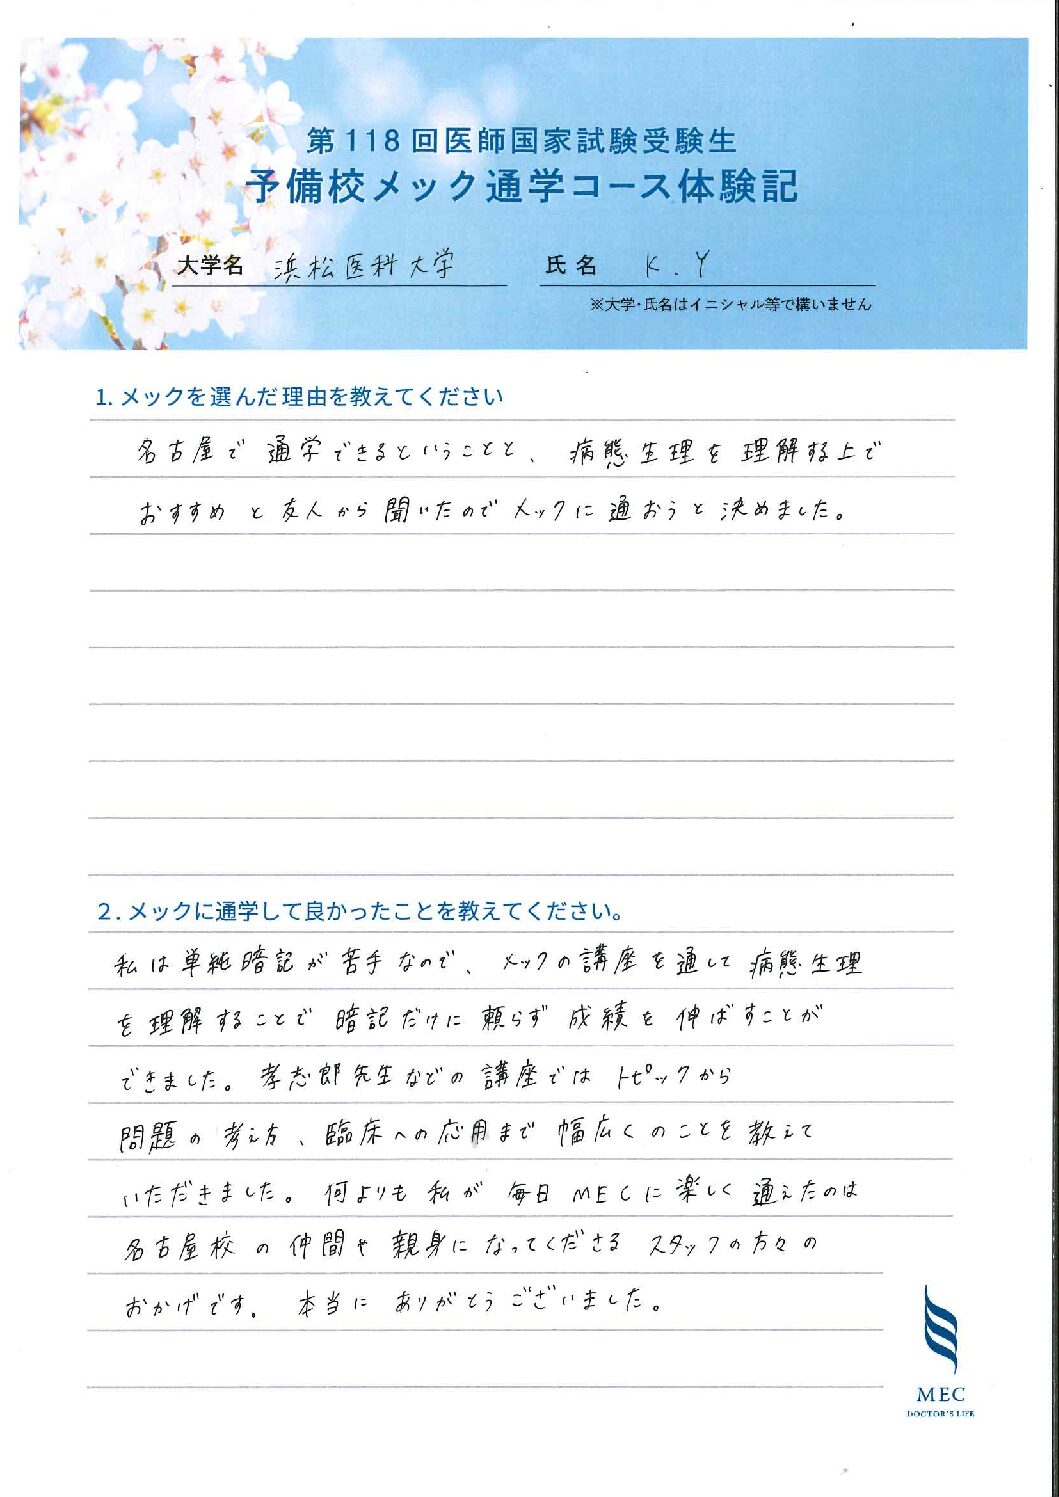 第118回医師国家試験受験生
予備校メック通学コース体験記
大学名 浜松医科大学 氏名 K.Y
※大学・氏名はイニシャル等で構いません
1. メックを選んだ理由を教えてください
名古屋で通学できるということと、病態生理を理解する上で
おすすめと友人から聞いたのでメックに通おうと決めました。
2. メックに通学して良かったことを教えてください。
私は単純暗記が苦手なので、メックの講座を通して病態生理
を理解することで暗記だけに頼らず成績を伸ばすことが
できました。孝志郎先生などの講座ではトピックから
問題の考え方、臨床への応用まで幅広くのことを教えて
いただきました。何よりも私が毎日MECに楽しく通えたのは
名古屋校の仲間や親身になってくださるスタッフの方々の
おかげです。本当にありがとうございました。
MEC
DOCTOR'S LIFE